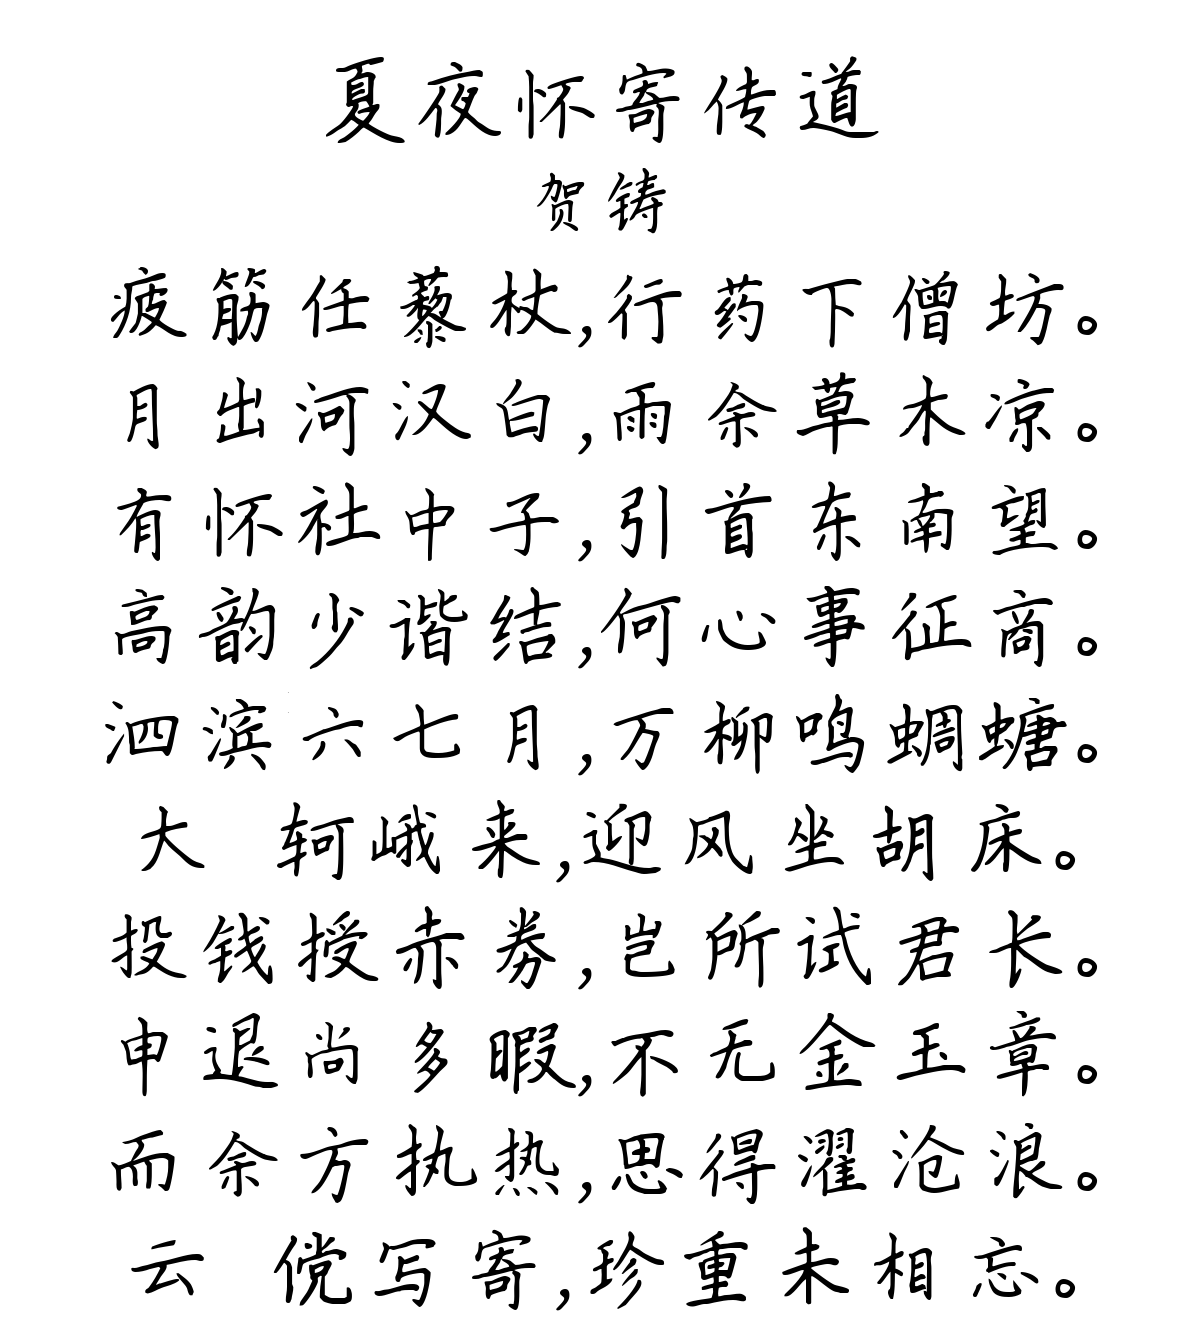 夏夜怀寄传道
贺铸
疲筋任藜杖,行药下僧坊。
月出河汉白,雨余草木凉。
有怀社中子,引首东南望。
高韵少谐结,何心事征商。
泗滨六七月,万柳鸣蜩螗。
大 轲峨来,迎风坐胡床。
投钱授赤券,岂所试君长。
申退尚多暇,不无金玉章。
而余方执热,思得濯沧浪。
云 傥写寄,珍重未相忘。